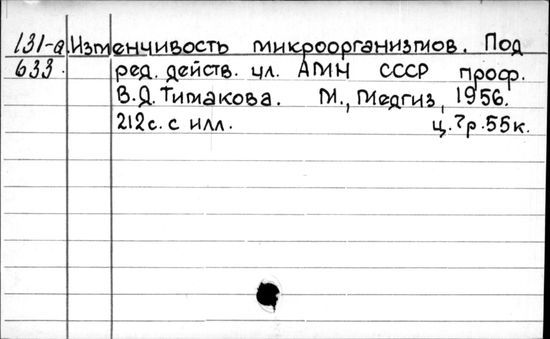 131-а Изменчивость микроорганизмов. Под
633. ред. действ. чл. АМН СССР проф.
В.Д. Тимакова. М., Медгиз, 1956.
212с. с илл. ц. 7р. 55к.